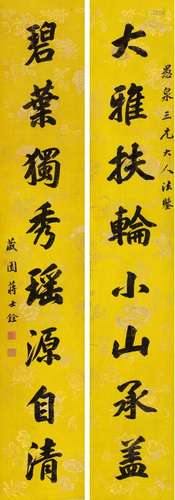 愚泉三兄大人法鑒
大雅扶輪小山承蓋
碧葉獨秀瑶源自清
藏園蔣士銓